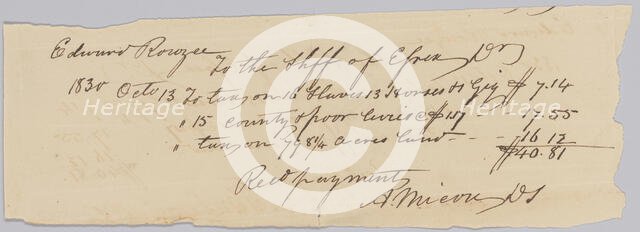 Edward Rowzee
To the Shff of Essex Dr
1830 Octo 13 To tax on 16 Slaves 13 Horses &1 Gig $7.14
" 15 county & poor levies @ $1.17 17.55
" tax on 798¼ acres land - - 16 12
$40.81
Recd payment
A. Micou DS
Heritage
Heritage
Heritage
Heritage